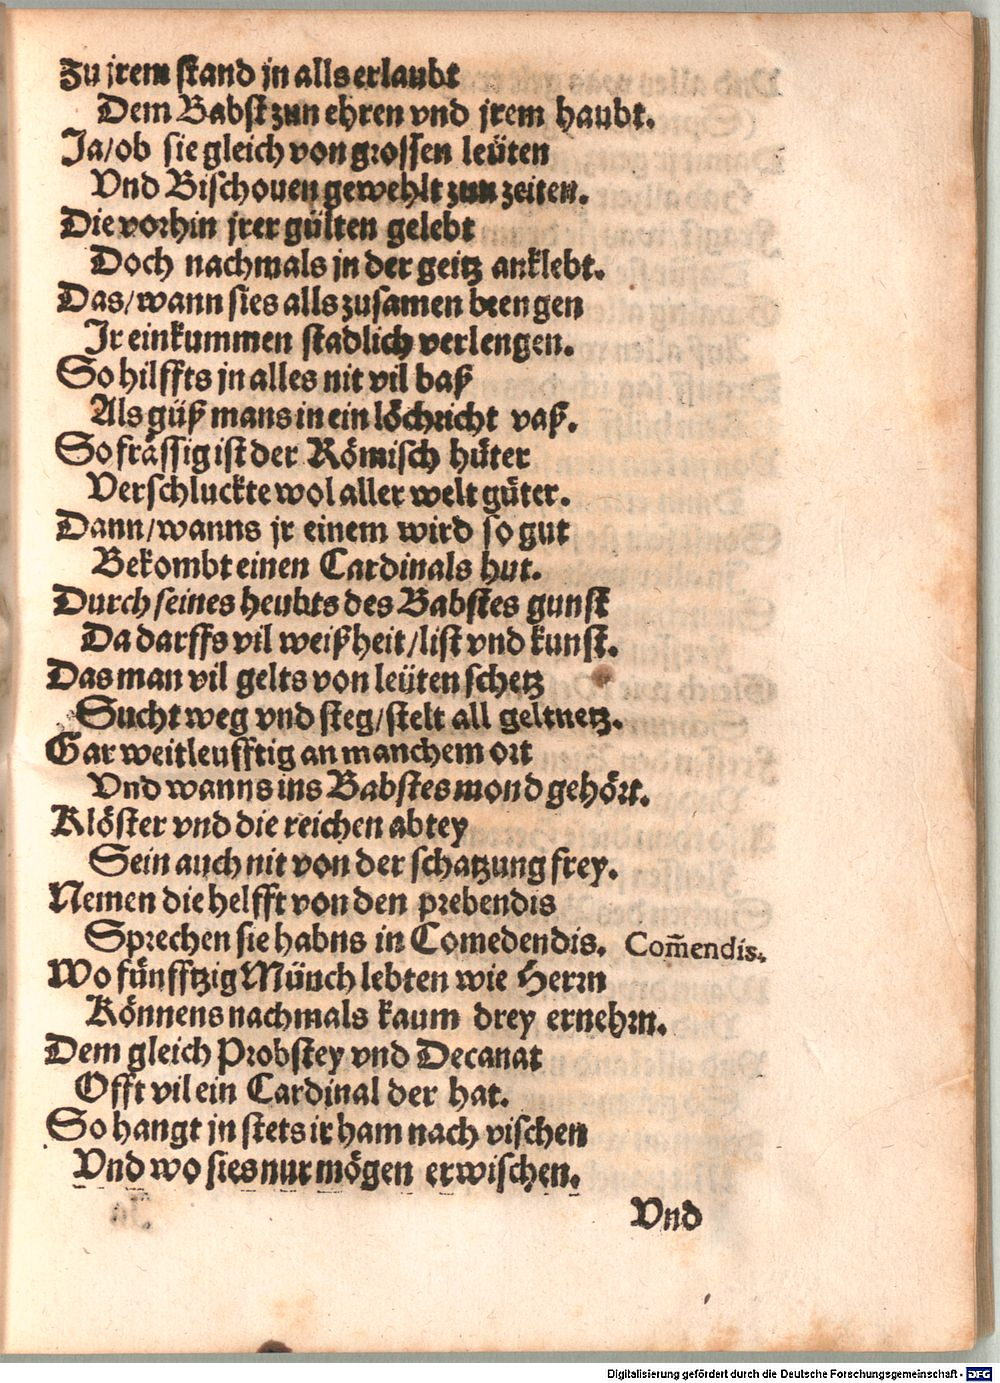 Zu jrem stand jn alls erlaubt
Dem Babst zun ehren vnd jrem haubt.
Ja/ob sie gleich von grossen leüten
Vnd Bischouen gewehlt zun zeiten.
Die vorhin jrer gülten gelebt
Doch nachmals jn der geitz anklebt.
Das/wann sies alls zusamen brengen
Ir einkummen stadlich verlengen.
So hilffts jn alles nit vil baß
Als güß mans in ein löchricht vaß.
So frässig ist der Römisch hüter
Verschluckte wol aller welt güter.
Dann/wanns jr einem wird so gut
Bekombt einen Cardinals hut.
Durch seines heubts des Babstes gunst
Da darffs vil weißheit/list vnd kunst.
Das man vil gelts von leüten schetz
Sucht weg vnd steg/stelt all geltnetz.
Gar weitleufftig an manchem ort
Vnd wanns ins Babstes mond gehört.
Klöster vnd die reichen abtey
Sein auch nit von der schatzung frey.
Nemen die helfft von den prebendis
Sprechen sie habns in Comedendis. Com̃endis.
Wo fünfftzig Münch lebten wie Herrn
Könnens nachmals kaum drey ernehrn.
Dem gleich Probstey vnd Decanat
Offt vil ein Cardinal der hat.
So hangt jn stets ir ham nach vischen
Vnd wo sies nur mögen erwischen.
Vnd
Digitalisierung gefördert durch die Deutsche Forschungsgemeinschaft - DFG